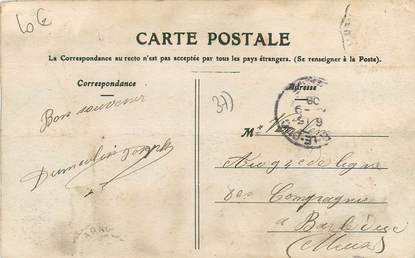 CARTE POSTALE
La Correspondance au recto n'est pas acceptée par tous les pays étrangers. (Se renseigner à la Poste).
Correspondance
Adresse
37)
Bon souvenir
M
Dumoulin Joseph
de ligne
8em Compagnie
a Bar le Duc
(Meuse)